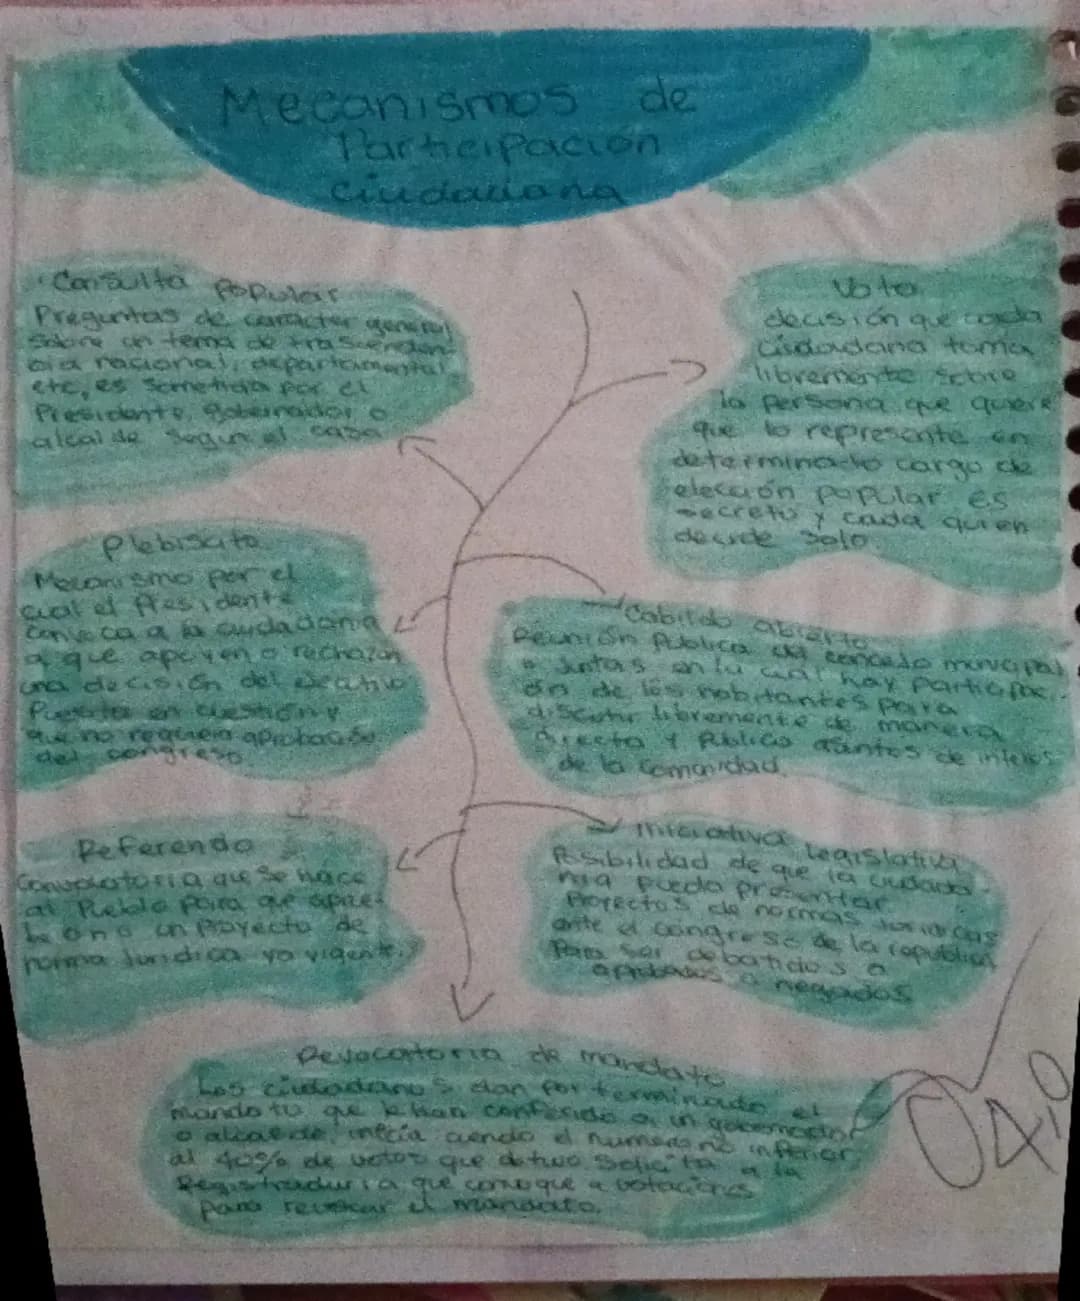 Mecanismos de
Participación
ciudadana
Consulta popular
Preguntas de caracter general
sobre un tema de trascenden
cia nacional, departamental
etc, es sometida por el
Presidente, gobernador o
alcalde segun el caso
Voto
decisión que cada
ciudadano toma
libremente sobre
la persona que quiere
que lo represente en
determinado cargo de
elección popular es
secreto y cada quien
decide solo.
Plebiscito
Mecanismo por el
cual el Presidente
convoca a la ciudadania
a que apoyen o rechazan
una decisión del ejecutivo
Puesta en cuestión y
que no requiera aprobación
del congreso.
Cabildo abierto
Reunión Publica del concejo municipal
o Juntas en la cual hay participaci
ón de los habitantes para
discutir libremente de manera
directa y Publico asuntos de interes
de la comunidad.
Referendo
Convocatoria que se hace
al Pueblo para que aprue-
be o no un Proyecto de
norma Juridica ya vigente.
Iniciativa Legislativa
Posibilidad de que la ciudada-
nia pueda presentar
Proyectos de normas Juridicas
ante el congreso de la republica
Para ser debatidos o
aprobados o negados
Revocatoria de mandato
Los ciudadanos dan por terminado el
mandato que le han conferido a un gobernador
o alcalde, ciendo el numero no inferior
al 40% de votos que obtuvo solicita a la
Registraduria que convoque a votaciones
para revocar el mandato.
04,0